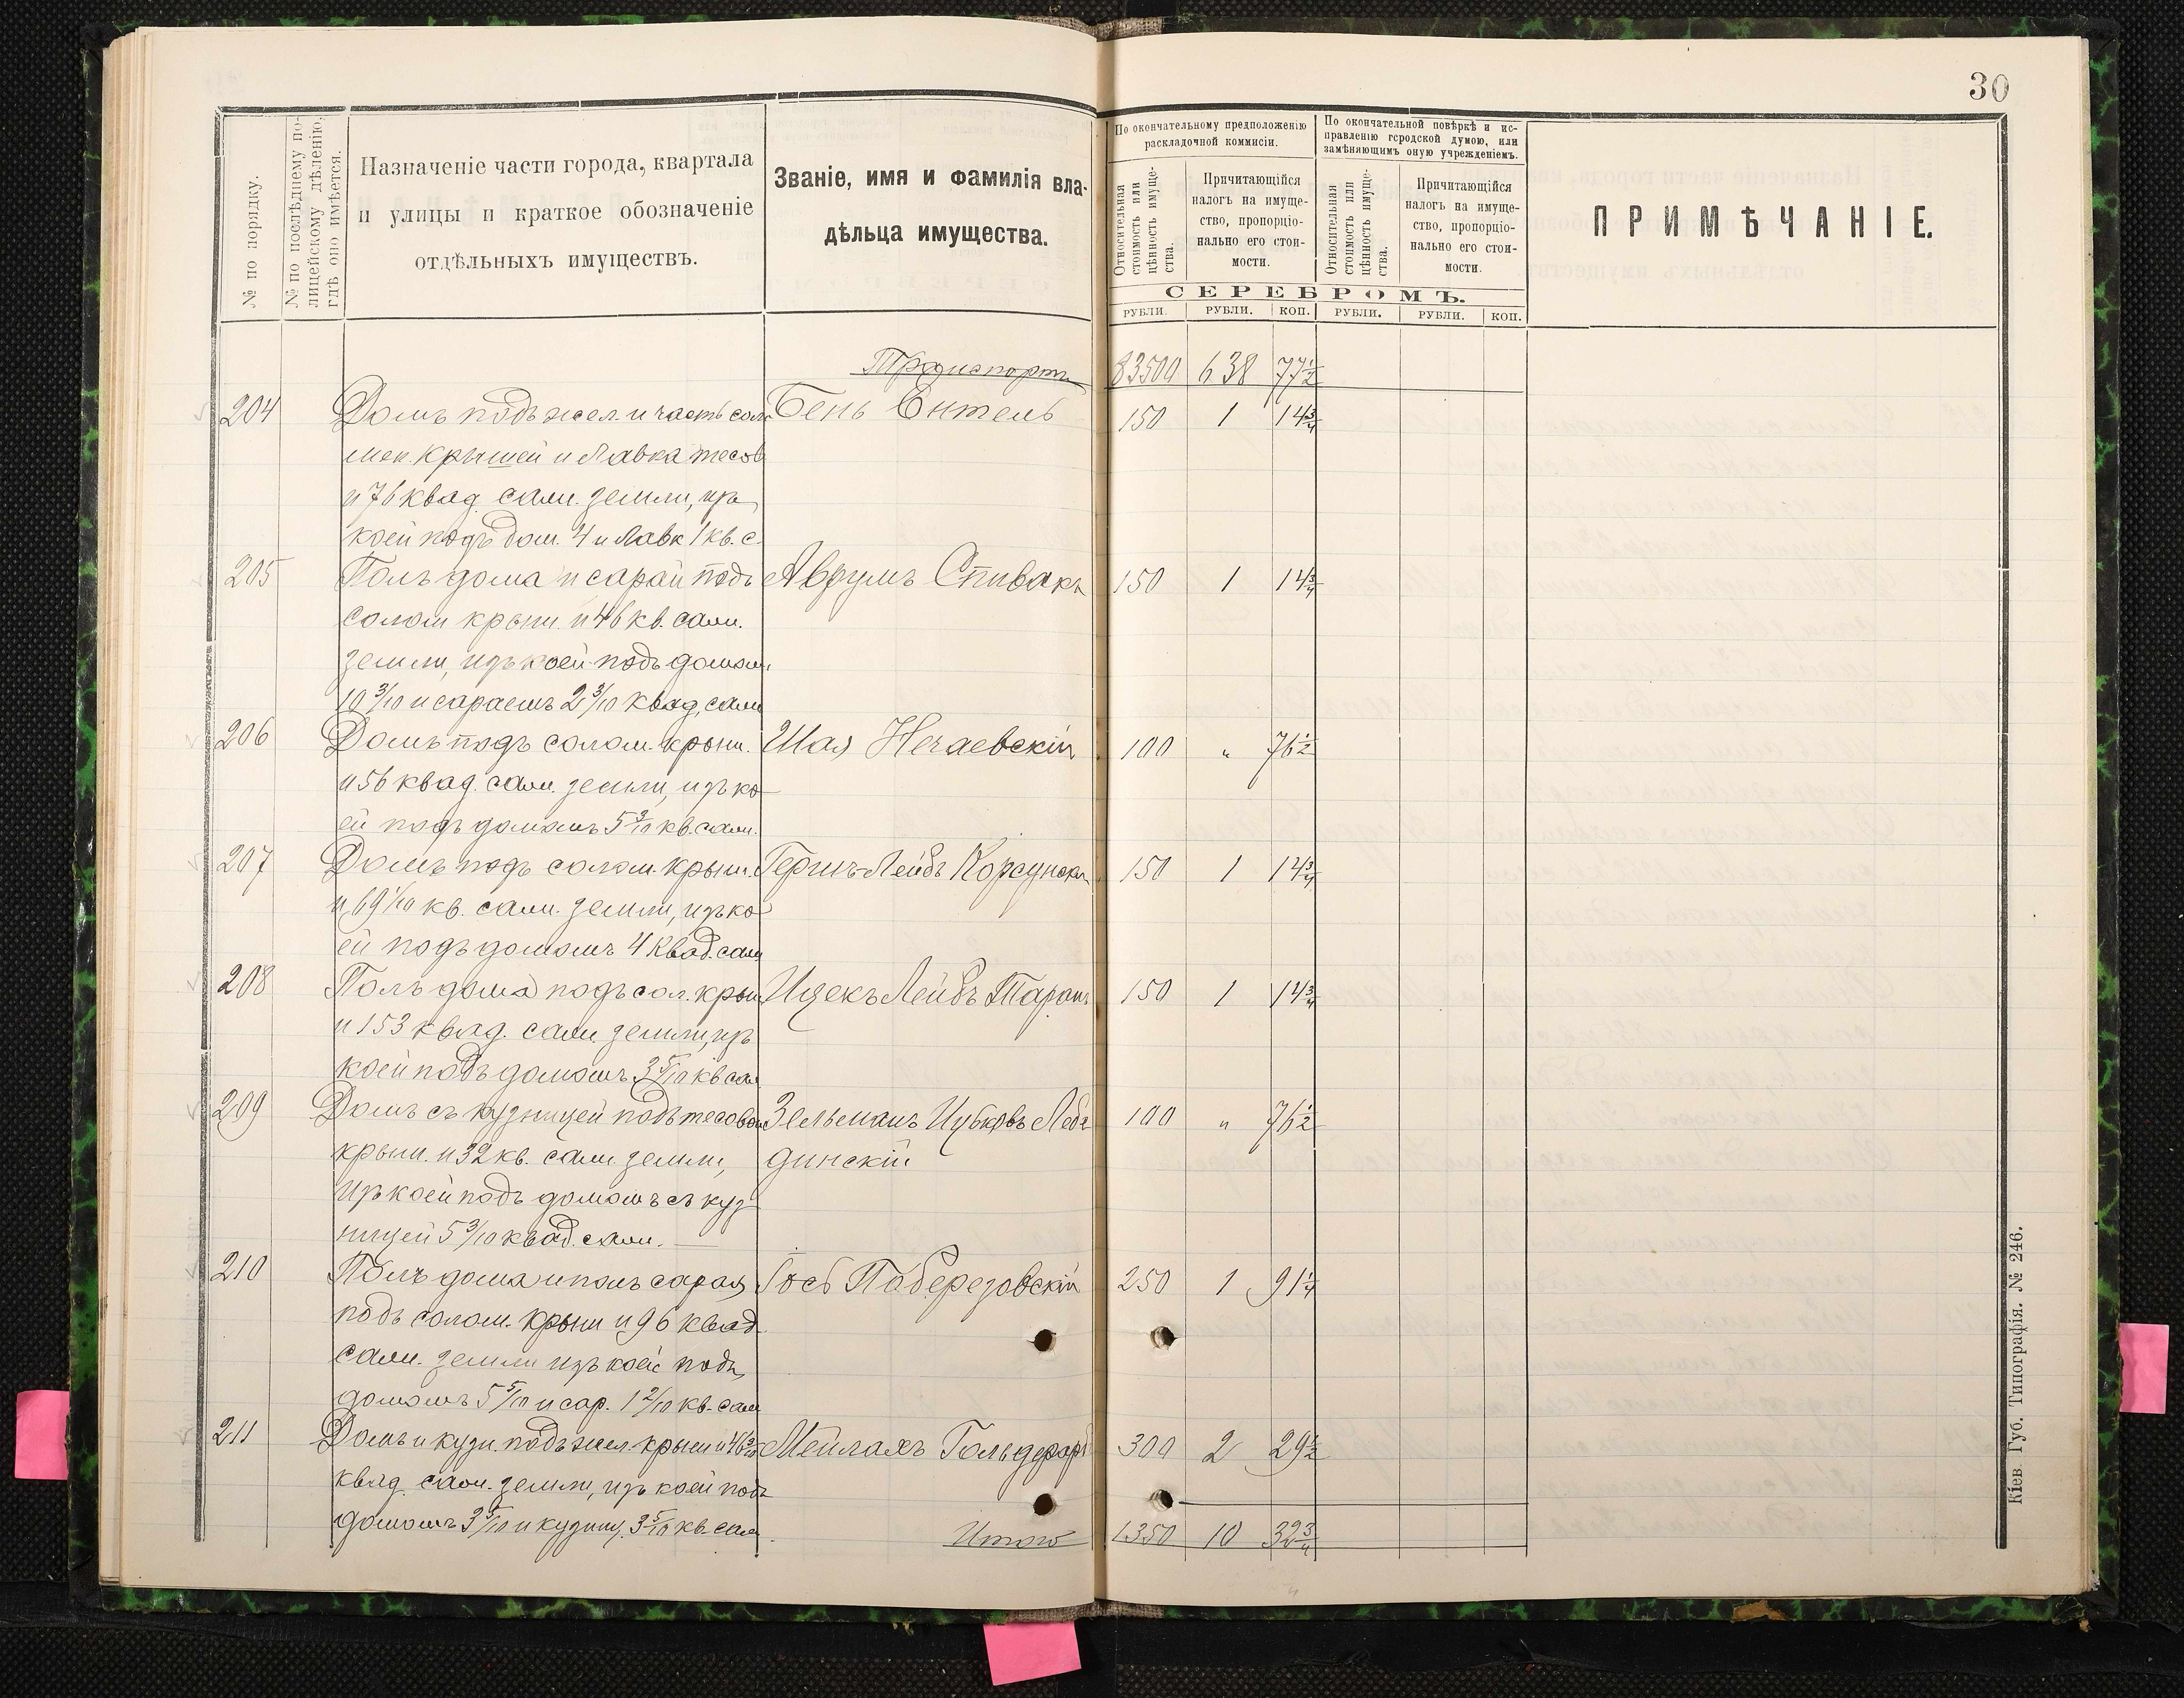 30
№ по порядку.
№ по послѣднему по-
лицейскому дѣленію,
гдѣ оно имѣется.
Назначеніе части города, квартала
и улицы и краткое обозначеніе
отдѣльныхъ имуществъ.
Званіе, имя и фамилія вла-
дѣльца имущества.
По окончательному предположенію
раскладочной коммисіи.
Относительная
стоимость или
цѣнность имуще-
ства.
Причитающійся
налогъ на имуще-
ство, пропорціо-
нально его стои-
мости.
По окончательной повѣркѣ и ис-
правленію городской думою, или
замѣняющимъ оную учрежденіемъ.
Относительная
стоимость или
цѣнность имуще-
ства.
Причитающійся
налогъ на имуще-
ство, пропорціо-
нально его стои-
мости.
СЕРЕБРОМЪ.
РУБЛИ. РУБЛИ. КОП. РУБЛИ. РУБЛИ. КОП.
ПРИМѢЧАНІЕ.
Транспортъ 83500 638 77½
204 Домъ подъ жел. и часть соло Бень Ентель 150 1 14¾
мен. крышей и лавка тесов
и 76 квад. саж. земли, изъ
коей подъ дом. 4 и лавк 1 кв. с.
205 Полъ дома и сарай подъ Аврумъ Спивакъ 150 1 14¾
солом крыш. и 46 кв. саж.
земли, изъ коей подъ домомъ
10 3/10 и сараемъ 2 3/10 квад. саж
206 Домъ подъ солом. крыш. Шая Нечаевскій 100 „ 76½
и 56 квад. саж. земли, изъ ко
ей подъ домомъ 5 3/10 кв. саж.
207 Домъ подъ солом. крыш. Гершъ-Лейбъ Корсунск 150 1 14¾
и 69 1/10 кв. саж. земли, изъ ко
ей подъ домомъ 4 квад. саж
208 Полъ дома подъ сол. крыш Ицекъ Лейбъ Таранъ 150 1 14¾
и 153 квад. саж земли, изъ
коей подъ домомъ 3 5/10 кв саж
209 Домъ съ кузницей подъ тесовой Зельманъ Лебе 100 „ 76½
крыш. и 32 кв. саж земли, динскій
изъ коей подъ домомъ съ куз
ницей 5 3/10 квад. саж.
210 Полъ дома и полъ сарая Іось Поберезовскій 250 1 91¼
подъ солом. крыш и 96 квад.
саж. земли изъ коей подъ
домомъ 5 5/10 и сар. 1 2/10 кв. саж
211 Домъ и кузн. подъ жел. крыш и 46 Мейлахъ Гольдфарб 300 2 29½
квад. саж. земли, изъ коей подъ
домомъ 3 5/10 и кузниц. 3 5/10 кв. саж
Итого 1350 10 32¾
Кіев. Губ. Типографія. № 246.